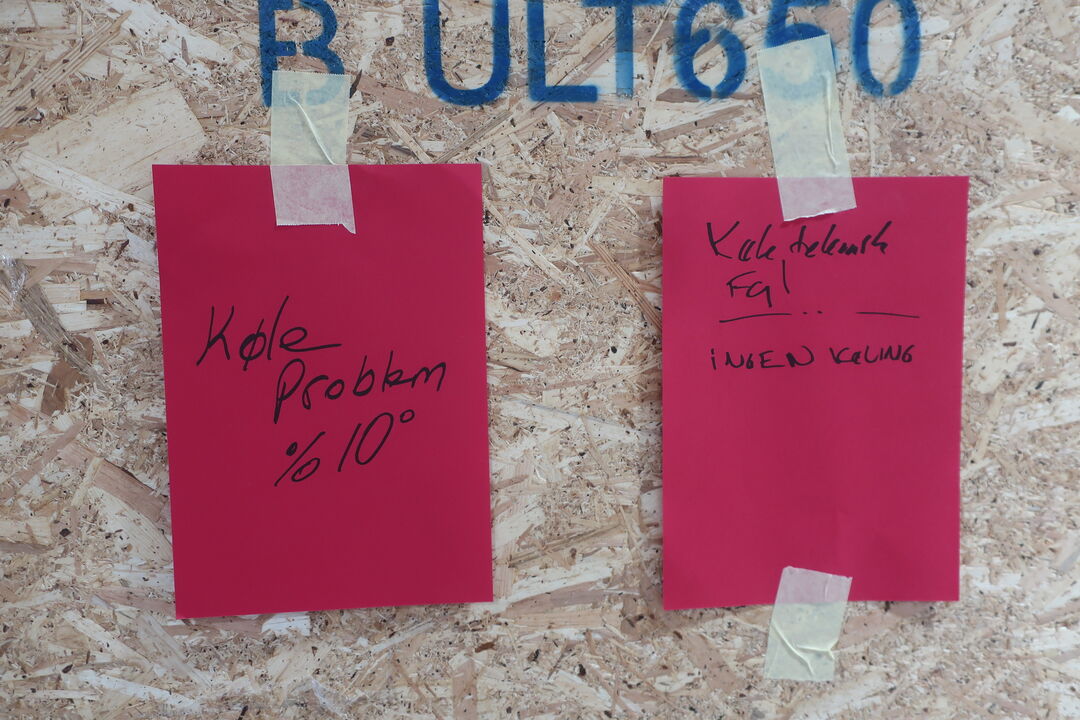 B ULT650
Køle
Problem
% 10°
Køle teknik
FG!
INGEN KØLING